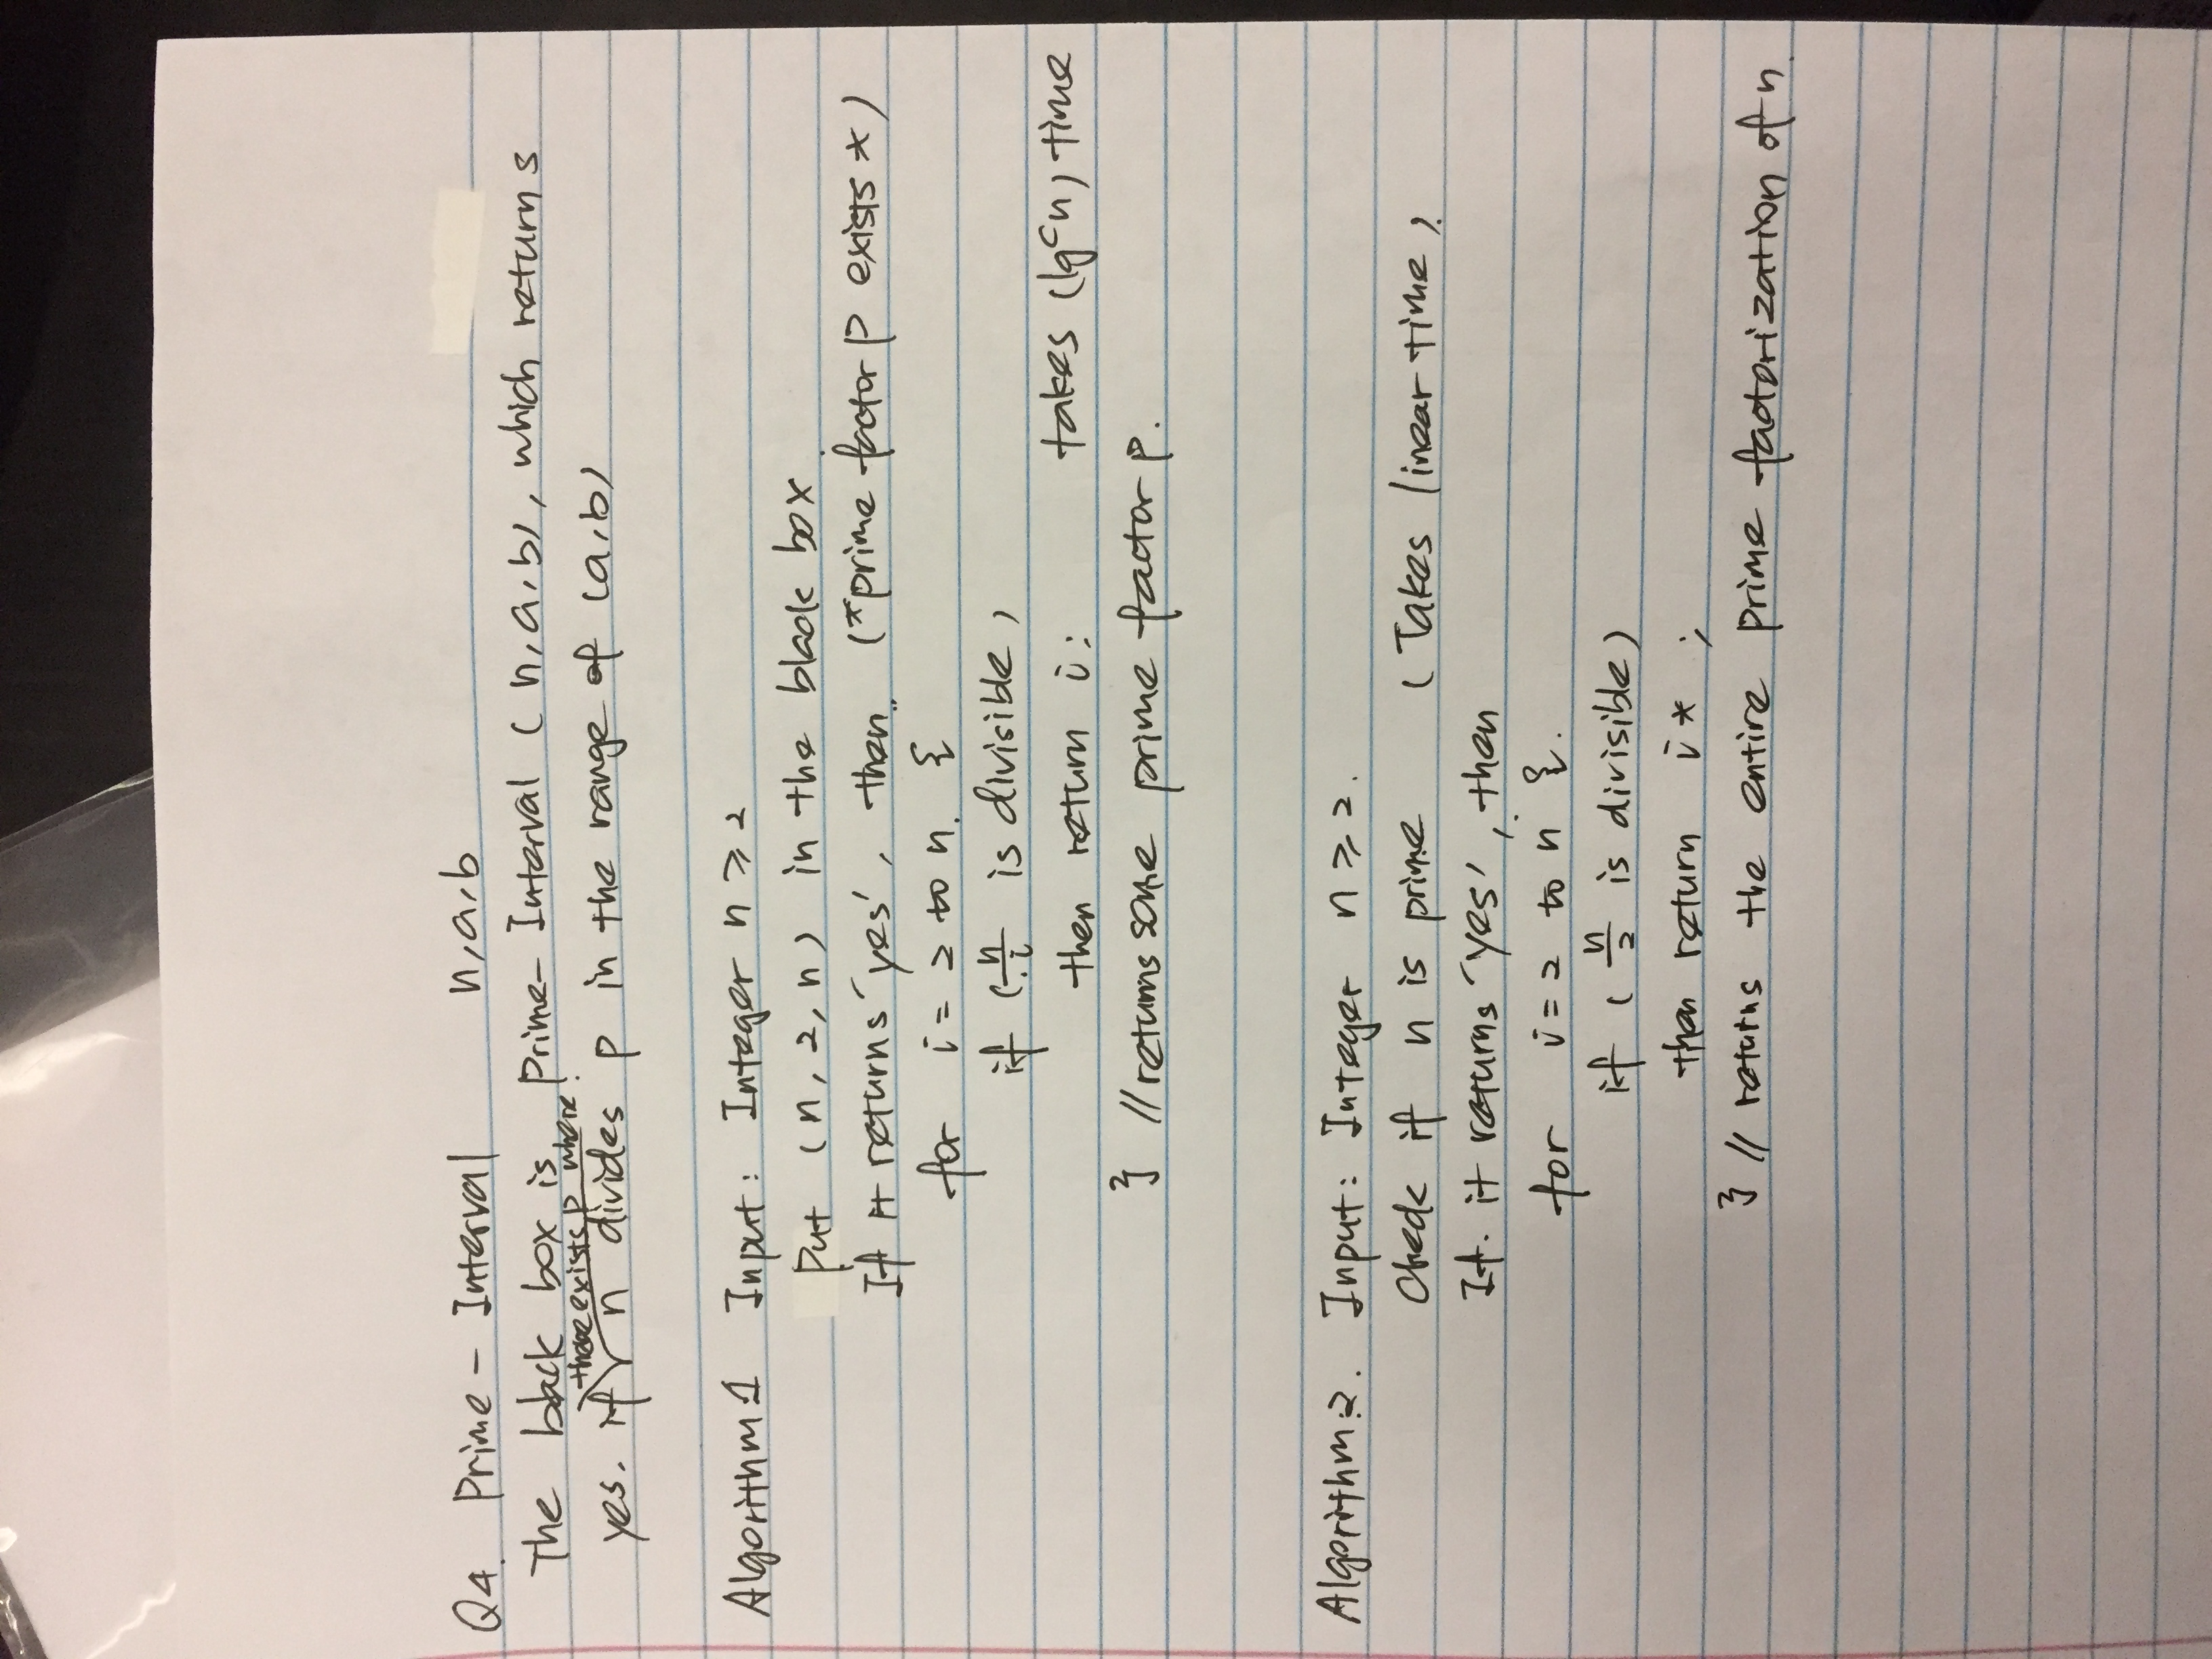 Q4. Prime - Interval n,a,b
The black box is, Prime-Interval (n,a,b), which returns
there exists p where
yes. if n divides p in the range of (a,b)
Algorithm1 Input: Integer n ≥ 2
Put (n, 2, n) in the black box.
If it returns 'yes', then (*prime factor p exists *)
for i = 2 to n. {
if ( n/i is divisible )
then return i; takes (lg^c n) time
} // returns some prime factor p.
Algorithm:2. Input: Integer n ≥ 2.
Check if n is prime (Takes linear time).
If. it returns 'yes', then
for i = 2 to n {.
if ( n/2 is divisible)
then return i * ;
} // returns the entire prime factorization of n.